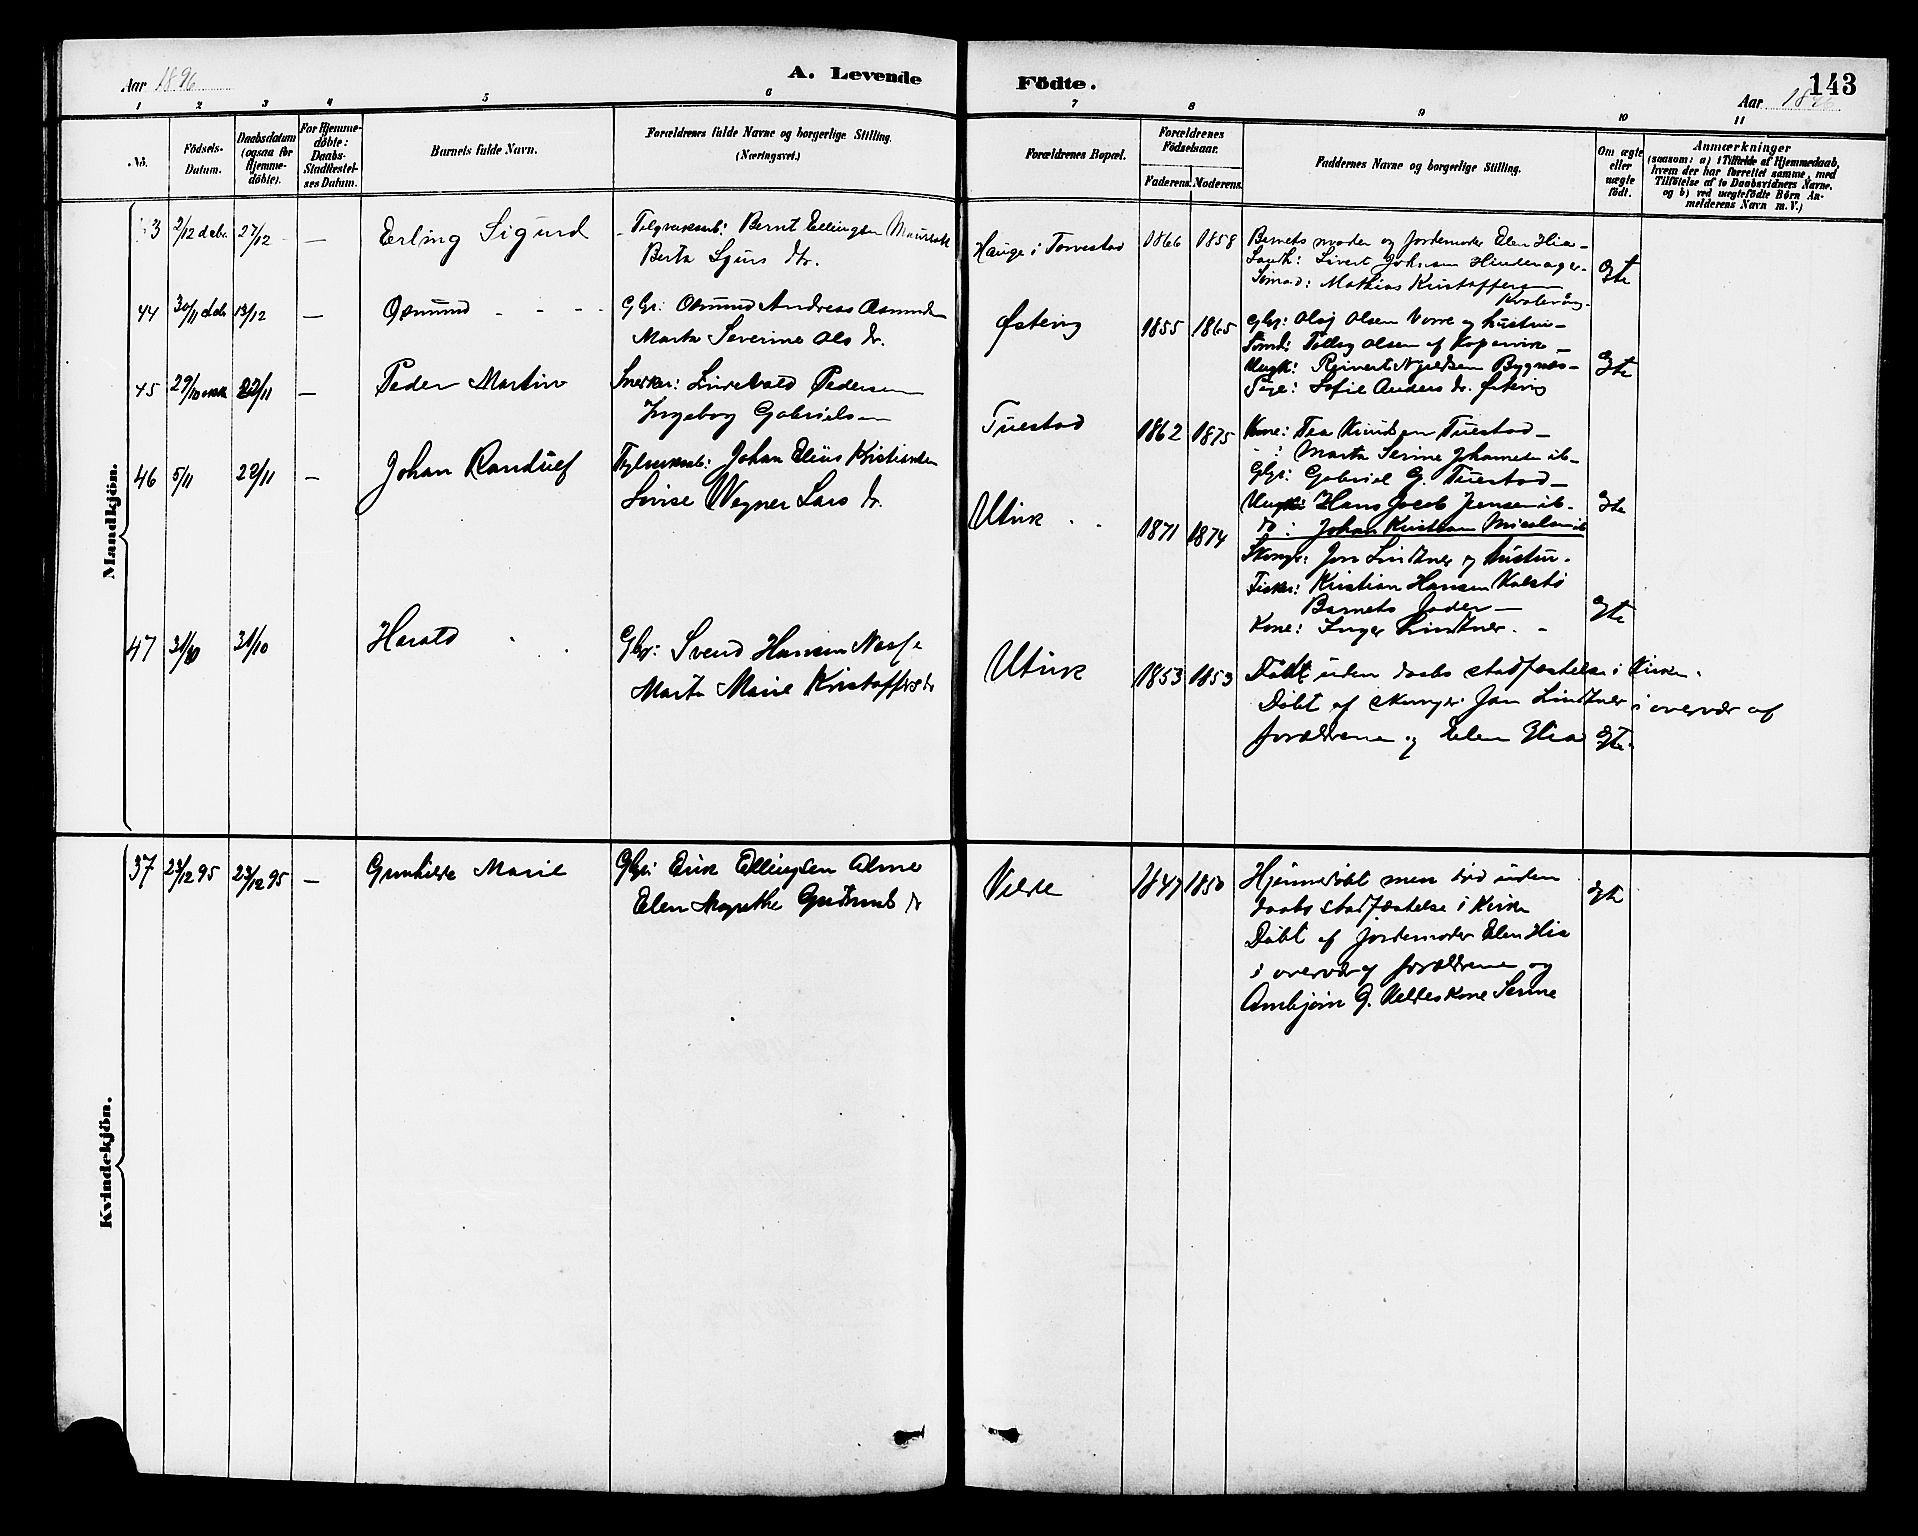 Aar 1896
A. Levende
Födte.
143
Aar 1896
1 2 3 4 5 6 7 8 9 10 11
No.
Födsels-Datum.
Daabsdatum (ogsaa for Hjemme-döbte).
For Hjemme-döbte: Daabs-Stadfæstel-ses Datum.
Barnets fulde Navn.
Forældrenes fulde Navne og borgerlige Stilling.
(Næringsvei.)
Forældrenes Bopæl.
Forældrenes Födselsaar.
Faderens. Moderens.
Faddernes Navne og borgerlige Stilling.
Om ægte eller uægte födt.
Anmærkninger
(saasom: a) i Tilfælde af Hjemmedaab,
hvem der har forrettet samme, med
Tilföielse af to Daabsvidners Navne,
og b) ved uegtefödte Börn An-
melderens Navn m. V.)
Mandkjön.
43 2/12 27/12 — Erling Sigurd
Bernt Ellingsen
Berta Sjurs dtr.
Hauge i Torvestad 1866 1858
Barnets moder og Jordemoder Elen Hia —
Sivert Johnsen Hinderager —
Mathias Kristoffersen
Egte
44 30/11 13/12 — Osmund
Gbr: Osmund Andreas Asmunds
Marta Severine Ols dr.
Østevig 1855 1865
Gbr: Olaj Olsen Vorre og hustru —
Tollag Olsen af Kopervik —
Ungk: Reinert Nyeldsen Bygnes —
Pige: Sofie Anders dr. Østevig
Egte
45 29/10 22/11 — Peder Martin
Snekker: Pedersen
Ingeborg Gabrielsen
Tuestad 1862 1875
Kone: Tea Knudsen Tuestad —
Marta Serine Johannesen ib —
Gbr: Gabriel G. Tuestad —
Ungk: Hans Jacob Jensen ib.
do: Johan Kristian
Egte
46 5/11 22/11 — Johan Randulf
Johan Elius Kristiansen
Lovise Wegner Lars dr.
Utvik 1871 1874
Skomgr: Jon Lindtner og hustru.
Fisker: Kristian Hansen Kalstø
Barnets fader —
Kone: Inger Lindtner. —
Egte
47 31/10 31/10 Harald
Gbr: Svend Hansen
Marta Marie Kristoffers dr
Utvik 1853 1853
Døbt uden daabs stadfæstelse i Kirken.
Døbt af skomgr. Jon Lindtner i overvær af
forældrene og Elen Hia Egte.
Kvindekjön.
37 23/12 95 23/12 95 — Gunhilde Marie
Gbr: Erik Ellingsen Alme
Elen Margrethe Gudmunds dr
Velde 1847 1850
Hjemmedøbt men død uden
daabs stadfæstelse i Kirken
Døbt af Jordemoder Elen Hia
i overvær af forældrene og
Arnbjørn G. Veldes Kone Serine
Egte